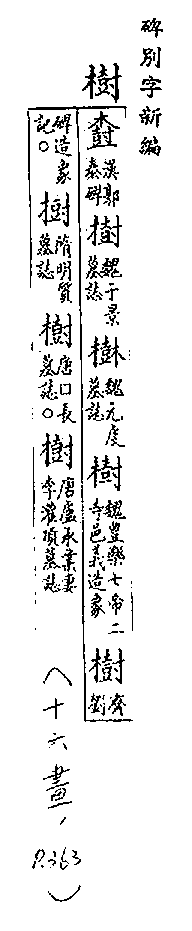 碑別字新編
樹
漢郭泰碑 樹 魏于景墓誌 樹 魏元度墓誌 樹 魏豐樂七帝二寺邑義造象 樹 齊劉
碑造象記。 樹 隋明質墓誌 樹 唐口長墓誌。 樹 唐盧承業妻李灌頂墓誌
(十六畫, P.363)